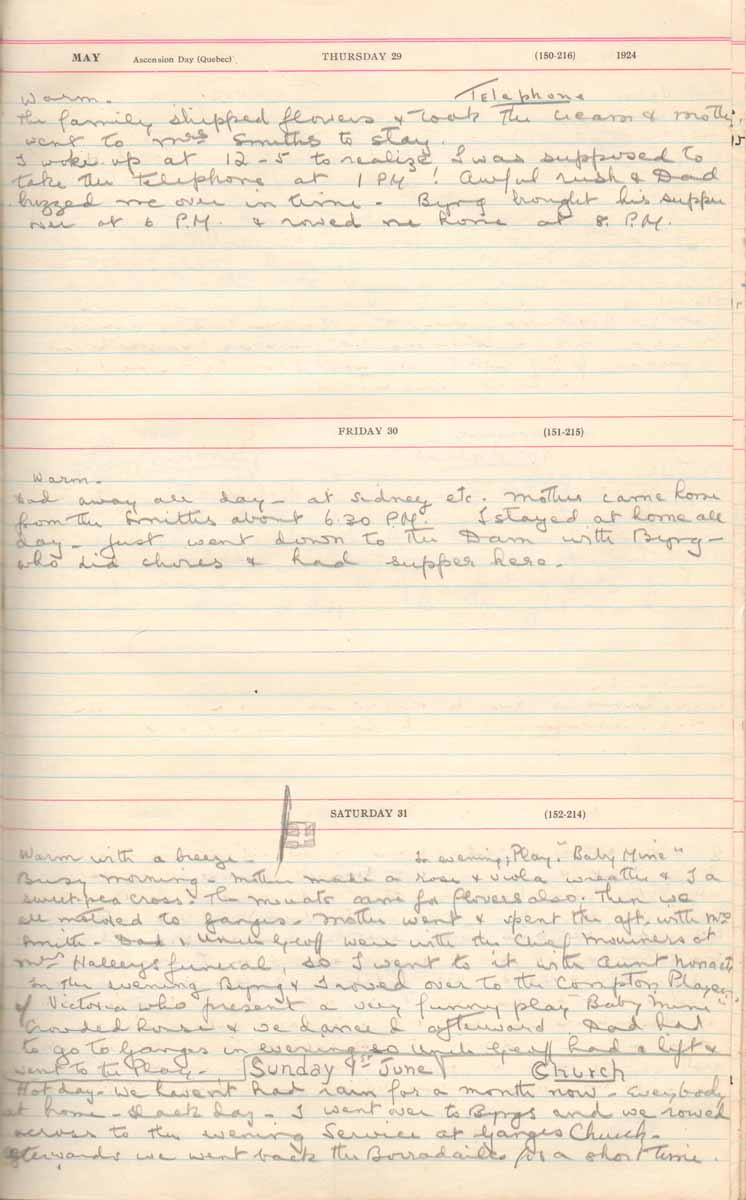 MAY Ascension Day (Quebec) THURSDAY 29 (150-216) 1924
Warm. Telephone
The family shipped flowers & took the cream & mother
went to Mrs Smiths to stay. 15
I woke up at 12-5 to realize I was supposed to
take the telephone at 1 PM! Awful rush & Dad
buzzed me over in time - Byng brought his supper
over at 6 P.M. & rowed me home at 8. P.M.
FRIDAY 30 (151-215)
Warm.
Dad away all day - at Sidney etc. Mother came home
from the Smiths about 6.30 P.M. I stayed at home all
day - just went down to the Dam with Byng -
who did chores & had supper here.
SATURDAY 31 (152-214)
Warm with a breeze - In evening, Play. "Baby Mine"
Busy morning - Mother made a rose & viola wreath & I a
sweet pea cross. The Mouats came for flowers also. Then we
all motored to Ganges - Mother went & spent the aft. with Mrs
Smith - Dad & Uncle Geoff were with the Chief Mourners at
Mrs Halleys funeral, so I went to it with Aunt
In the evening Byng & I rowed over to the Compton Players
of Victoria who present a very funny play "Baby Mine"
Crowded house & we danced afterward Dad had
to go to Ganges in evening so Uncle Geoff had a lift &
went to the Play - Sunday 1st June Church
Hot day - We havent had rain for a month now - Everybody
at home - Slack day - I went over to Byngs and we rowed
across to the evening Service at Ganges Church -
afterwards we went back the Borradailes for a short time.